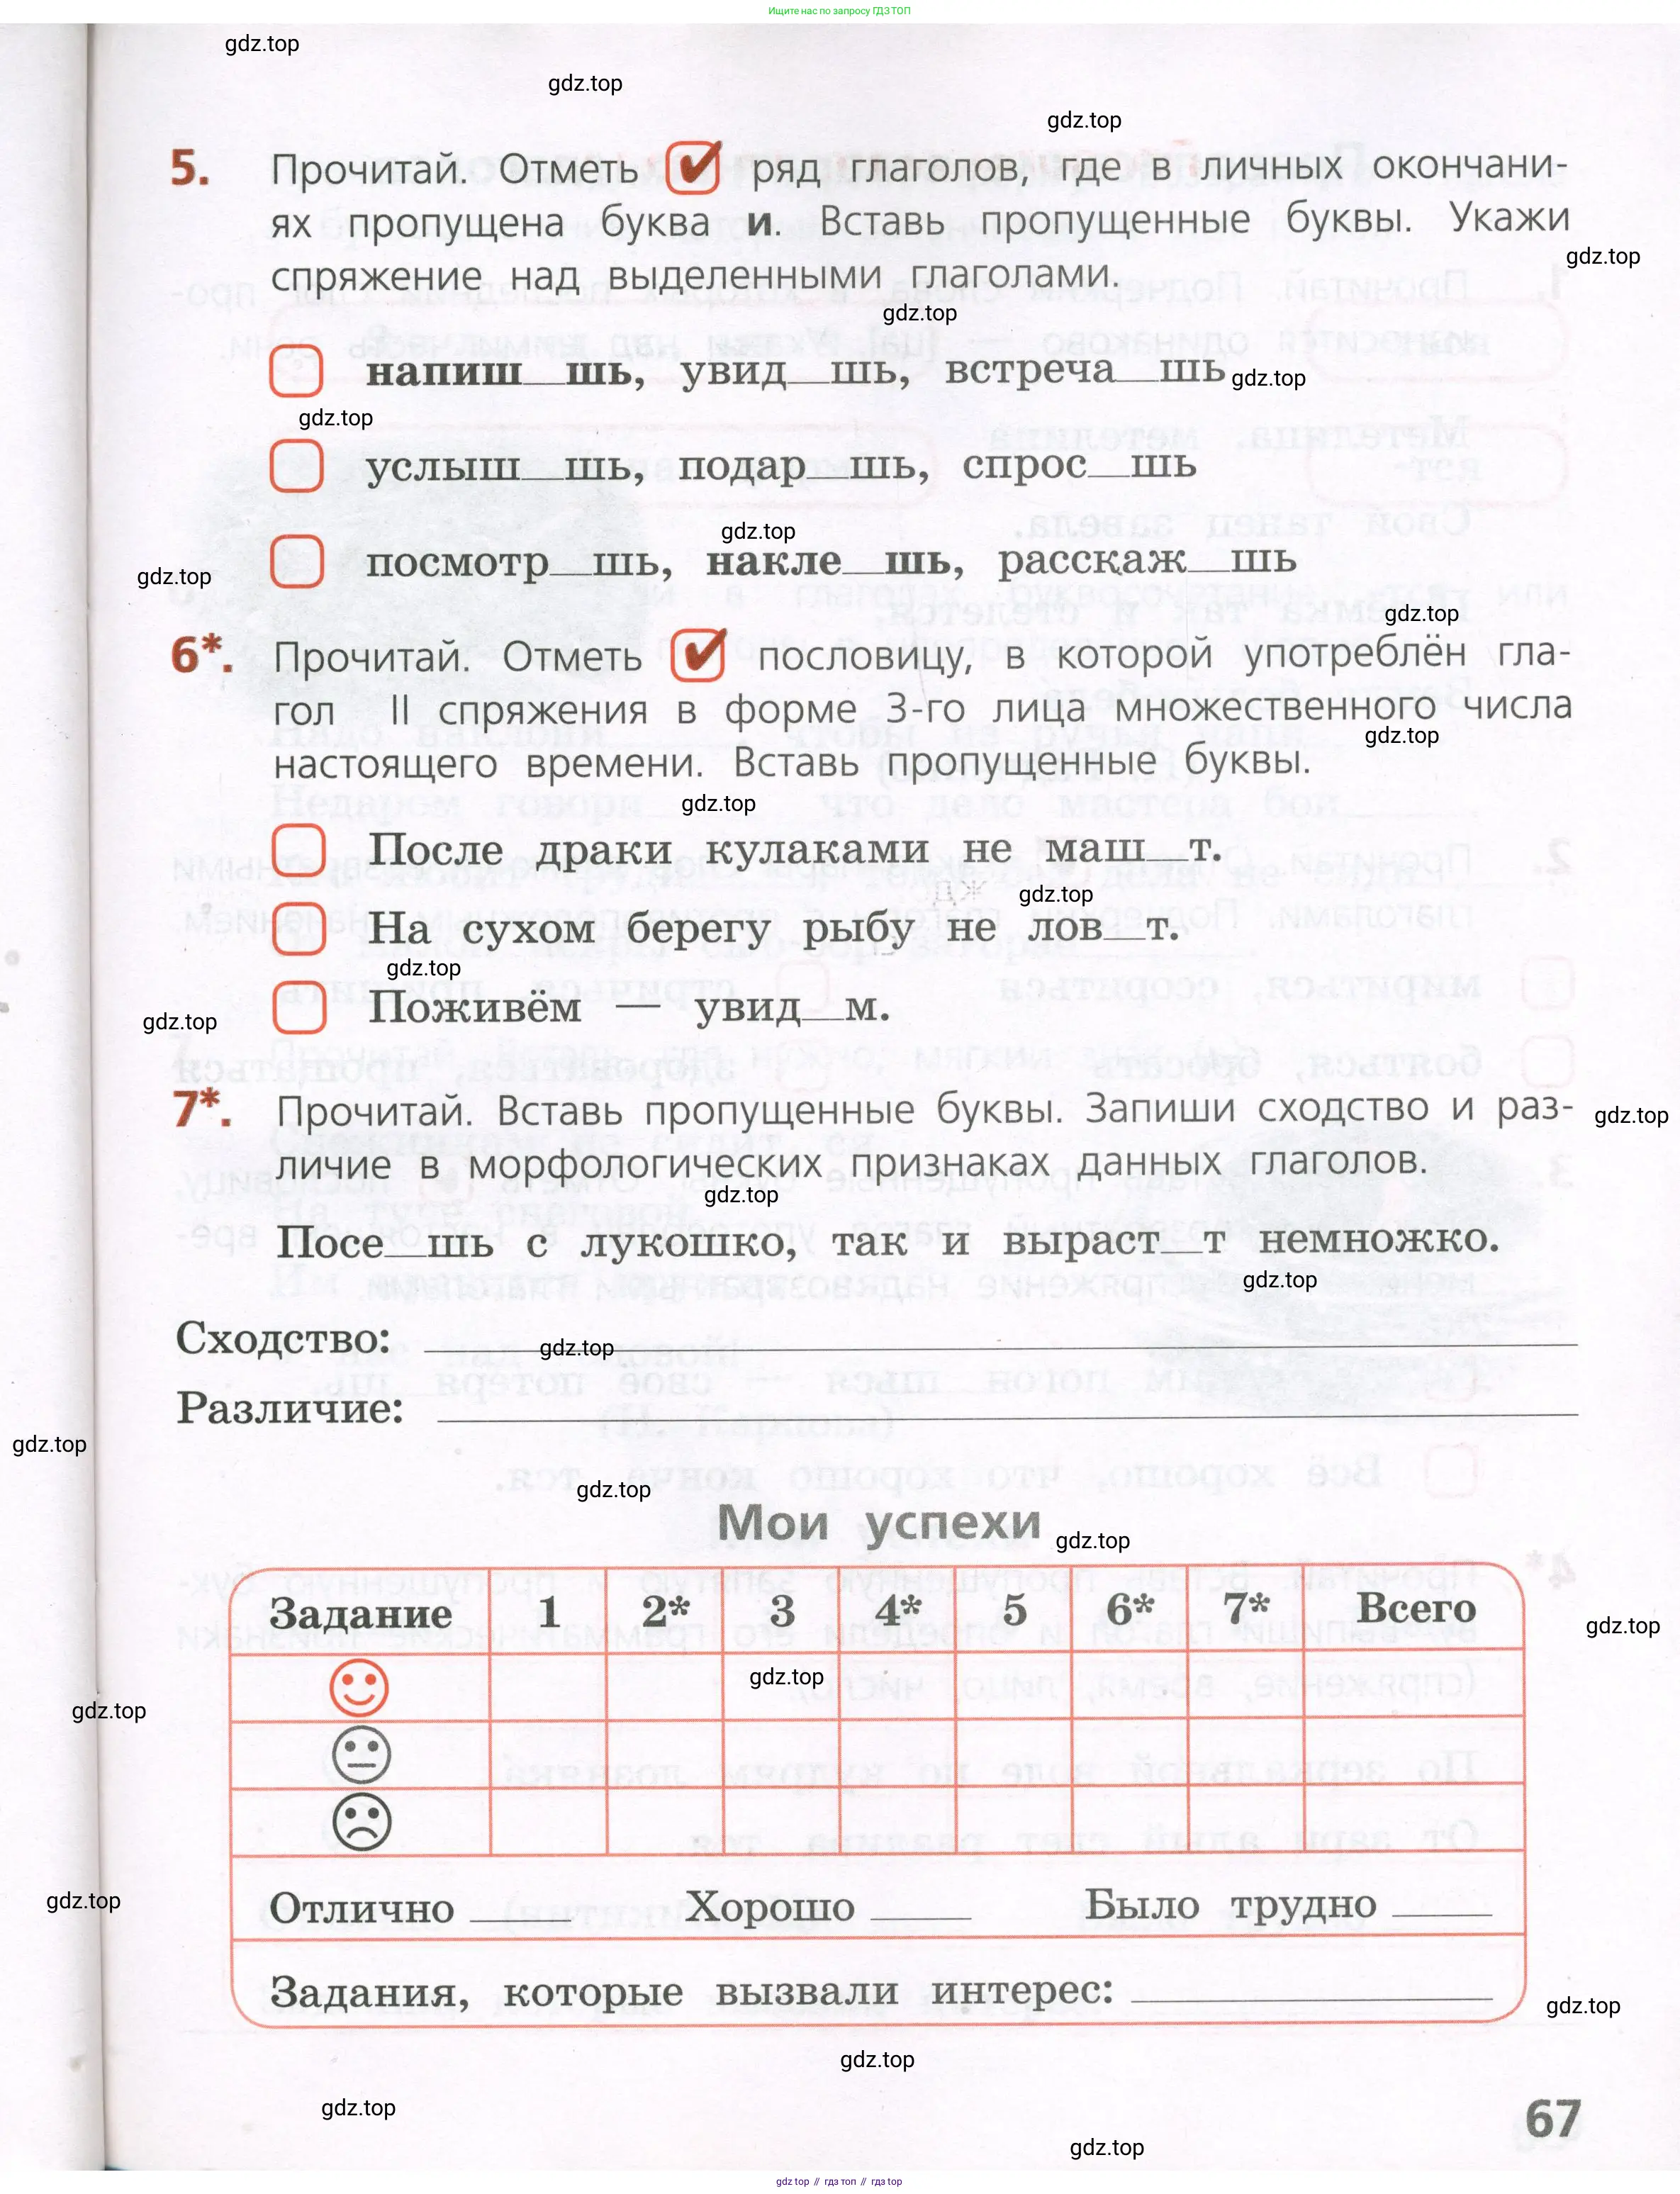 Ищите нас по запросу ГДЗ ТОП
gdz.top
gdz.top
gdz.top
5. Прочитай. Отметь ряд глаголов, где в личных окончани-
ях пропущена буква и. Вставь пропущенные буквы. Укажи
gdz.top
спряжение над выделенными глаголами.
gdz.top
напиш__шь, увид__шь, встреча__шь
gdz.top
gdz.top
услыш__шь, подар__шь, спрос__шь
gdz.top
посмотр__шь, накле__шь, расскаж__шь
gdz.top
gdz.top
6*. Прочитай. Отметь пословицу, в которой употреблён гла-
гол II спряжения в форме 3-го лица множественного числа
gdz.top
настоящего времени. Вставь пропущенные буквы.
gdz.top
После драки кулаками не маш__т.
gdz.top
На сухом берегу рыбу не лов__т.
gdz.top
Поживём — увид__м.
gdz.top
7*. Прочитай. Вставь пропущенные буквы. Запиши сходство и раз-
gdz.top
личие в морфологических признаках данных глаголов.
gdz.top
Посе__шь с лукошко, так и выраст__т немножко.
gdz.top
Сходство:
gdz.top
Различие:
gdz.top
gdz.top
Мои успехи
gdz.top
Задание 1 2* 3 4* 5 6* 7* Всего
gdz.top
gdz.top
gdz.top
gdz.top
Отлично ____ Хорошо ____ Было трудно ____
Задания, которые вызвали интерес:
gdz.top
gdz.top
gdz.top
67
gdz.top
gdz.top // гдз топ // gdz.top